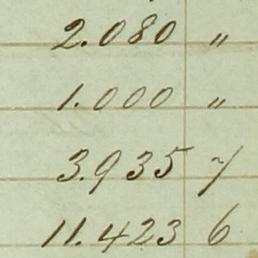 2.080 "
1.000 "
3.935 7
11.423 6